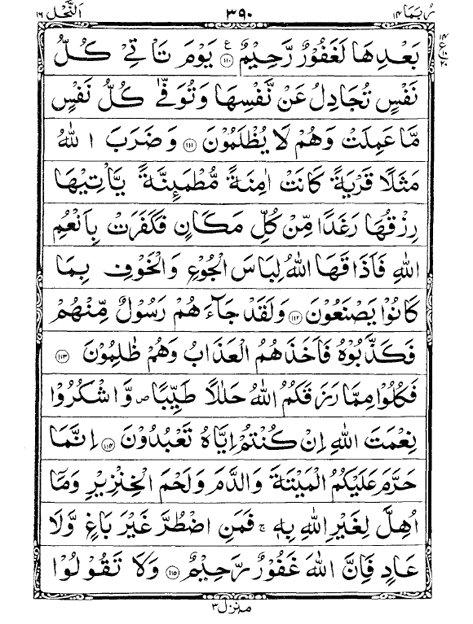 رُبَمَا ١٤ ٣٩٠ اَلنَّحْل ١٦
بَعْدِهَا لَغَفُوْرٌ رَّحِيْمٌ ﴿١١٠﴾ يَوْمَ تَاْتِيْ كُلُّ
نَفْسٍ تُجَادِلُ عَنْ نَّفْسِهَا وَتُوَفّٰى كُلُّ نَفْسٍ
مَّا عَمِلَتْ وَهُمْ لَا يُظْلَمُوْنَ ﴿١١١﴾ وَضَرَبَ اللّٰهُ
مَثَلًا قَرْيَةً كَانَتْ اٰمِنَةً مُّطْمَئِنَّةً يَّاْتِيْهَا
رِزْقُهَا رَغَدًا مِّنْ كُلِّ مَكَانٍ فَكَفَرَتْ بِاَنْعُمِ
اللّٰهِ فَاَذَاقَهَا اللّٰهُ لِبَاسَ الْجُوْعِ وَالْخَوْفِ بِمَا
كَانُوْا يَصْنَعُوْنَ ﴿١١٢﴾ وَلَقَدْ جَآءَهُمْ رَسُوْلٌ مِّنْهُمْ
فَكَذَّبُوْهُ فَاَخَذَهُمُ الْعَذَابُ وَهُمْ ظٰلِمُوْنَ ﴿١١٣﴾
فَكُلُوْا مِمَّا رَزَقَكُمُ اللّٰهُ حَلٰلًا طَيِّبًا ص وَّاشْكُرُوْا
نِعْمَتَ اللّٰهِ اِنْ كُنْتُمْ اِيَّاهُ تَعْبُدُوْنَ ﴿١١٤﴾ اِنَّمَا
حَرَّمَ عَلَيْكُمُ الْمَيْتَةَ وَالدَّمَ وَلَحْمَ الْخِنْزِيْرِ وَمَآ
اُهِلَّ لِغَيْرِ اللّٰهِ بِهٖ ج فَمَنِ اضْطُرَّ غَيْرَ بَاغٍ وَّلَا
عَادٍ فَاِنَّ اللّٰهَ غَفُوْرٌ رَّحِيْمٌ ﴿١١٥﴾ وَلَا تَقُوْلُوْا
منزل ٣